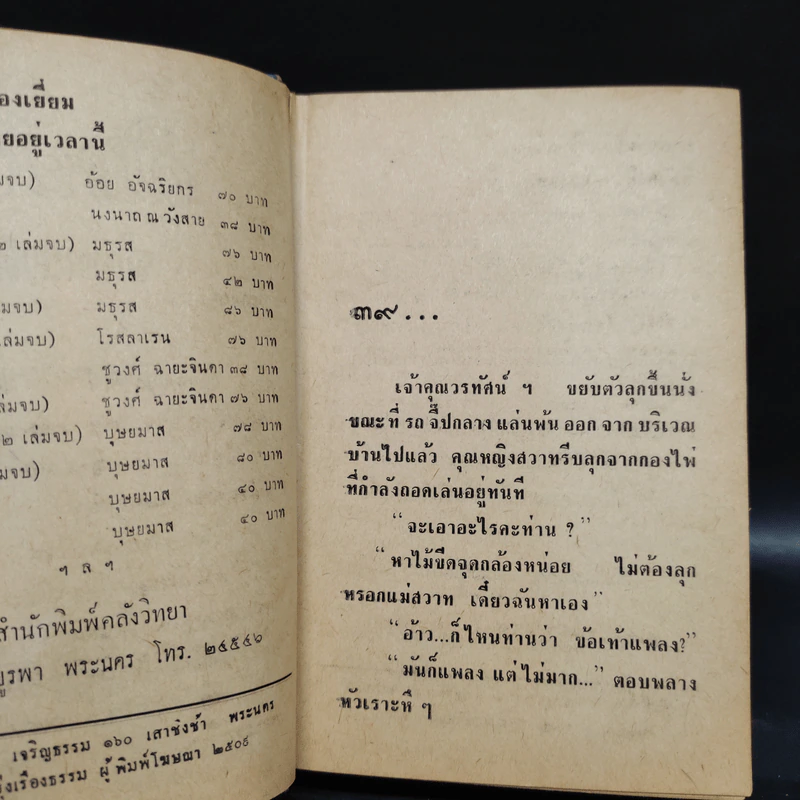 องเยี่ยม
ยอยู่เวลานี้
มจบ) อ้อย อัจฉริยกร ๗๐ บาท
นงนาถ ณ วังสาย ๓๘ บาท
๒ เล่มจบ) มธุรส ๗๖ บาท
มธุรส ๔๒ บาท
มจบ) มธุรส ๘๖ บาท
ล่มจบ) โรสลาเรน ๗๖ บาท
ชูวงศ์ ฉายะจินดา ๓๘ บาท
ล่มจบ) ชูวงศ์ ฉายะจินดา ๗๖ บาท
๒ เล่มจบ) บุษยมาส ๗๘ บาท
มจบ) บุษยมาส ๘๐ บาท
บุษยมาส ๔๐ บาท
บุษยมาส ๔๐ บาท
ฯ ล ฯ
สำนักพิมพ์คลังวิทยา
บูรพา พระนคร โทร. ๒๔๕๔๖
เจริญธรรม ๑๖๐ เสาชิงช้า พระนคร
รุ่งเรืองธรรม ผู้พิมพ์โฆษณา ๒๕๐๙
๓๙...
เจ้าคุณวรทัศน์ ฯ ขยับตัวลุกขึ้นนั่ง
ขณะที่ รถ จี๊ปกลาง แล่นพ้น ออก จาก บริเวณ
บ้านไปแล้ว คุณหญิงสวาทรีบลุกจากกองไพ่
ที่กำลังถอดเล่นอยู่ทันที
“จะเอาอะไรคะท่าน ?”
“หาไม้ขีดจุดกล้องหน่อย ไม่ต้องลุก
หรอกแม่สวาท เดี๋ยวฉันหาเอง”
“อ้าว...ก็ไหนท่านว่า ข้อเท้าแพลง?”
“มันก็แพลง แต่ไม่มาก...” ตอบพลาง
หัวเราะหึ ๆ